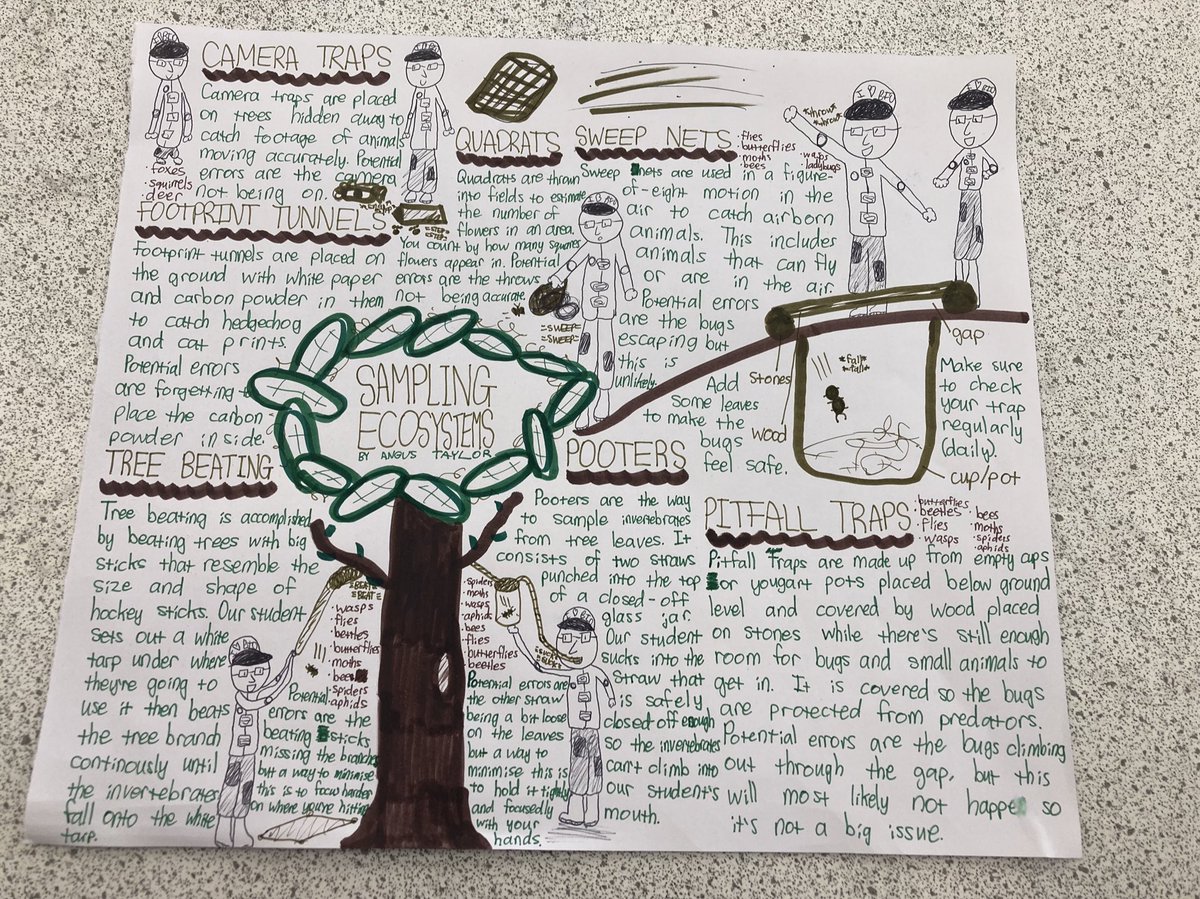 CAMERA TRAPS
Camera traps are placed
on trees hidden away to
catch footage of animals
moving accurately. Potential
errors are the camera
not being on.
foxes
squirrels
deer
FOOTPRINT TUNNELS
Footprint tunnels are placed on
the ground with white paper
and carbon powder in them
to catch hedgehog
and cat prints.
Potential errors
are forgetting to
place the carbon
powder inside.
QUADRATS
Quadrats are thrown
into fields to estimate
the number of
flowers in an area.
You count by how many squares
flowers appear in. Potential
errors are the throws
not being accurate
SWEEP NETS
• flies
• butterflies
• moths
• bees
• wasps
• ladybugs
Sweep nets are used in a figure-
of-eight motion in the
air to catch airborn
animals. This includes
animals that can fly
or are in the air.
Potential errors
are the bugs
escaping but
this is
unlikely.
=SWEEP=
=SWEEP=
*throw*
*throw*
I ♡ BIO
I ♡ BIO
SAMPLING
ECOSYSTEMS
BY ANGUS TAYLOR
TREE BEATING
Tree beating is accomplished
by beating trees with big
sticks that resemble the
size and shape of
hockey sticks. Our student
sets out a white
tarp under where
they're going to
use it then beats
the tree branch
continously until
the invertebrates
fall onto the white
tarp.
• wasps
• flies
• beetles
• butterflies
• moths
• bees
• spiders
• aphids
Potential
errors are the
beating sticks
missing the branches
but a way to minimise
this is to focus harder
on where you're hitting
POOTERS
Pooters are the way
to sample invertebrates
from tree leaves. It
consists of two straws
punched into the top
of a closed-off
glass jar.
Our student
sucks into the
straw that
is safely
closed off enough
so the invertebrates
can't climb into
our student's
mouth.
• spiders
• moths
• wasps
• aphids
• bees
• flies
• butterflies
• beetles
Potential errors are
the other straw
being a bit loose
on the leaves
but a way to
minimise this is
to hold it tightly
and focusedly
with your
hands.
PITFALL TRAPS
• butterflies
• beetles
• flies
• wasps
• bees
• moths
• spiders
• aphids
Pitfall Traps are made up from empty cups
or yougart pots placed below ground
level and covered by wood placed
on stones while there's still enough
room for bugs and small animals to
get in. It is covered so the bugs
are protected from predators.
Potential errors are the bugs climbing
out through the gap, but this
will most likely not happen so
it's not a big issue.
Add
some leaves
to make the
bugs
feel safe.
Stones
Wood
*fall*
*fall*
gap
Make sure
to check
your trap
regularly
(daily).
cup/pot